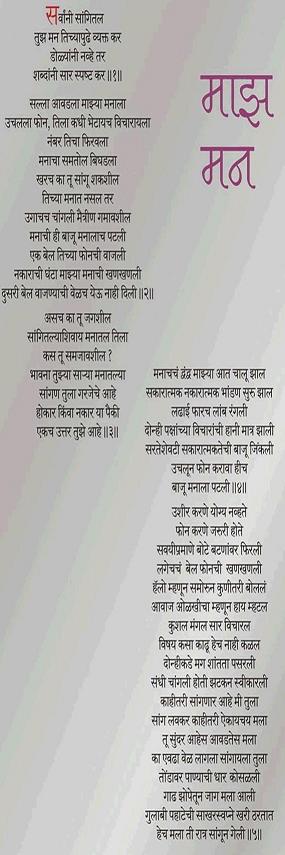 माझ
मन
सर्वांनी सांगितल
तुझ मन तिच्यापुढे व्यक्त कर
डोळ्यांनी नव्हे तर
शब्दांनी सार स्पष्ट कर ॥१॥
सल्ला आवडला माझ्या मनाला
उचलला फोन, तिला कधी भेटायच विचारायला
नंबर तिचा फिरवला
मनाचा समतोल बिघडला
खरच का तू सांगू शकशील
तिच्या मनात नसल तर
उगाचच चांगली मैत्रीण गमावशील
मनाची ही बाजू मनालाच पटली
एक बेल तिच्या फोनची वाजली
नकाराची घंटा माझ्या मनाची खणखणली
दुसरी बेल वाजण्याची वेळच येऊ नाही दिली ॥२॥
असच का तू जगशील
सांगितल्याशिवाय मनातल तिला
कस तू समजावशील ?
भावना तुझ्या साऱ्या मनातल्या
सांगण तुला गरजेचे आहे
होकार किंवा नकार या पैकी
एकच उत्तर तुझे आहे ॥३॥
मनाचचं द्वंद्व माझ्या आत चालू झाल
सकारात्मक नकारात्मक भांडण सुरु झाल
लढाई फारच लांब रंगली
दोन्ही पक्षांच्या विचारांची हानी मात्र झाली
सरतेशेवटी सकारात्मकतेची बाजू जिंकली
उचलून फोन करावा हीच
बाजू मनाला पटली ॥४॥
उशीर करणे योग्य नव्हते
फोन करणे जरुरी होते
सवयीप्रमाणे बोटे बटणांवर फिरली
लगेचचं बेल फोनची खणखणली
हॅलो म्हणून समोरुन कुणीतरी बोललं
आवाज ओळखीचा म्हणून हाय म्हटल
कुशल मंगल सार विचारल
विषय कसा काढू हेच नाही कळल
दोन्हीकडे मग शांतता पसरली
संधी चांगली होती झटकन स्वीकारली
काहीतरी सांगणार आहे मी तुला
सांग लवकर काहीतरी ऐकायचय मला
तू सुंदर आहेस आवडतेस मला
का एवढा वेळ लागला सांगायला तुला
तोंडावर पाण्याची धार कोसळली
गाढ झोपेतून जाग मला आली
गुलाबी पहाटेची साखरस्वप्ने खरी ठरतात
हेच मला ती रात्र सांगून गेली ॥५॥